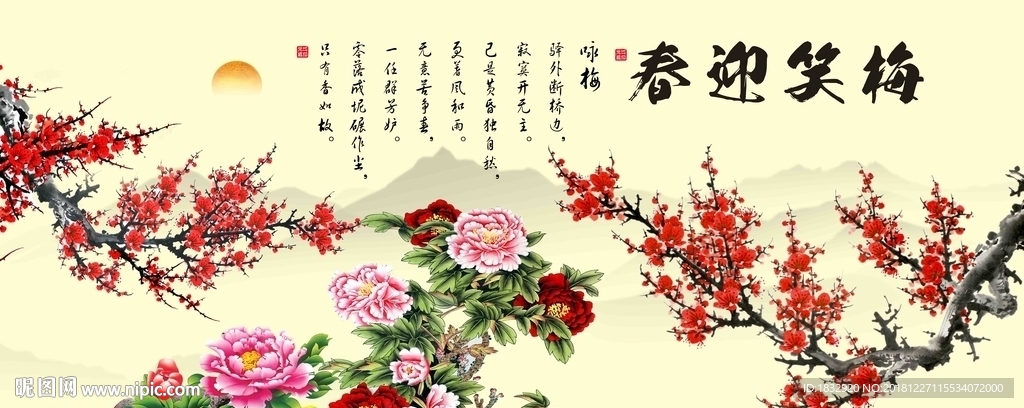 梅笑迎春
咏梅
驿外断桥边，
寂寞开无主。
已是黄昏独自然，
更着风和雨。
无意苦争春，
一任群芳妒。
零落成坭碾作尘，
只有香如故。
昵图网 www.nipic.com
ID:1832900 NO:20181227115534072000